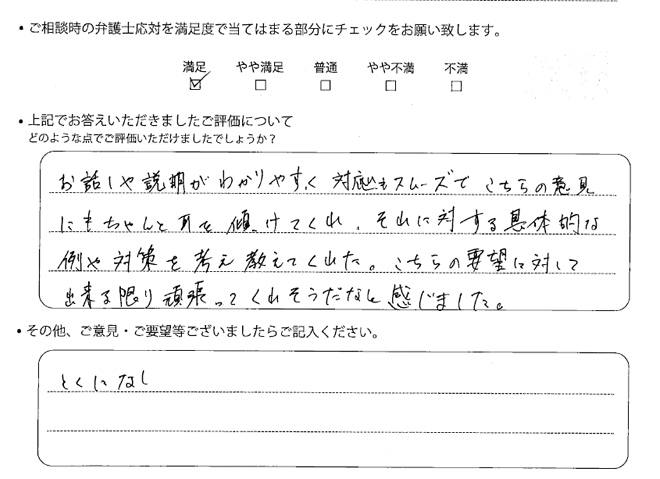 ・ご相談時の弁護士応対を満足度で当てはまる部分にチェックをお願い致します。
満足 やや満足 普通 やや不満 不満
☑ ☐ ☐ ☐ ☐
・上記でお答えいただきましたご評価について
どのような点でご評価いただけましたでしょうか？
お話しや説明がわかりやすく対応もスムーズでこちらの意見
にもちゃんと耳を傾けてくれ、それに対する具体的な
例や対策を考え教えてくれた。こちらの要望に対して
出来る限り頑張ってくれそうだなと感じました。
・その他、ご意見・ご要望等ございましたらご記入ください。
とくになし